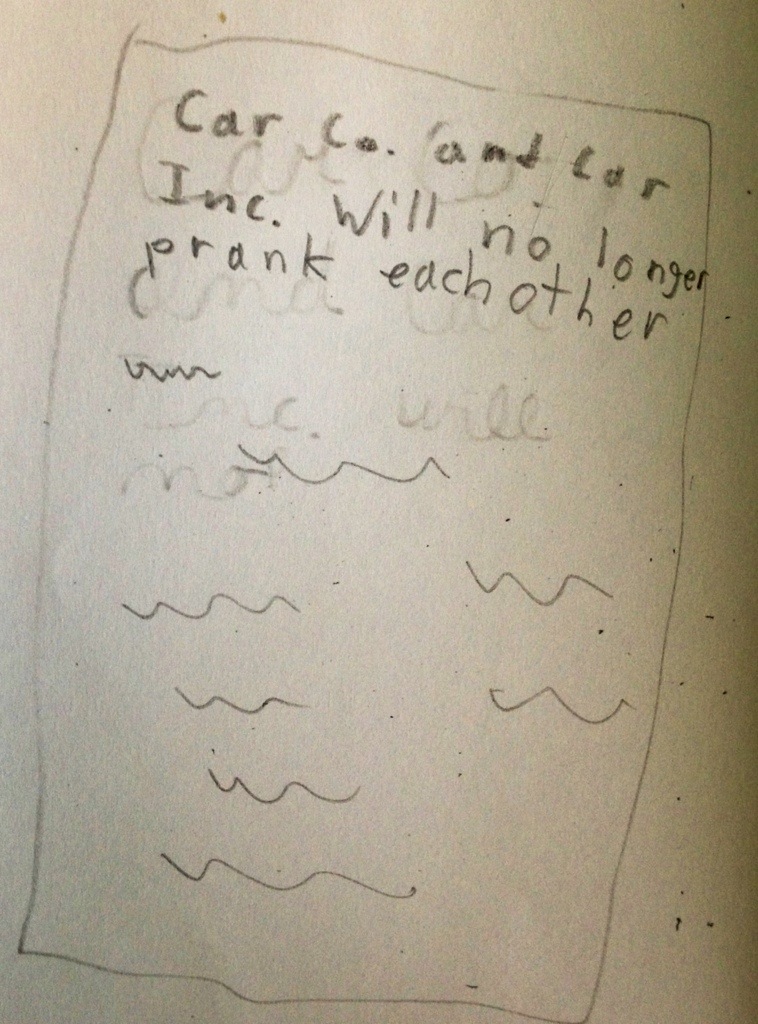 Car Co. and Car
Inc. Will no longer
prank each other